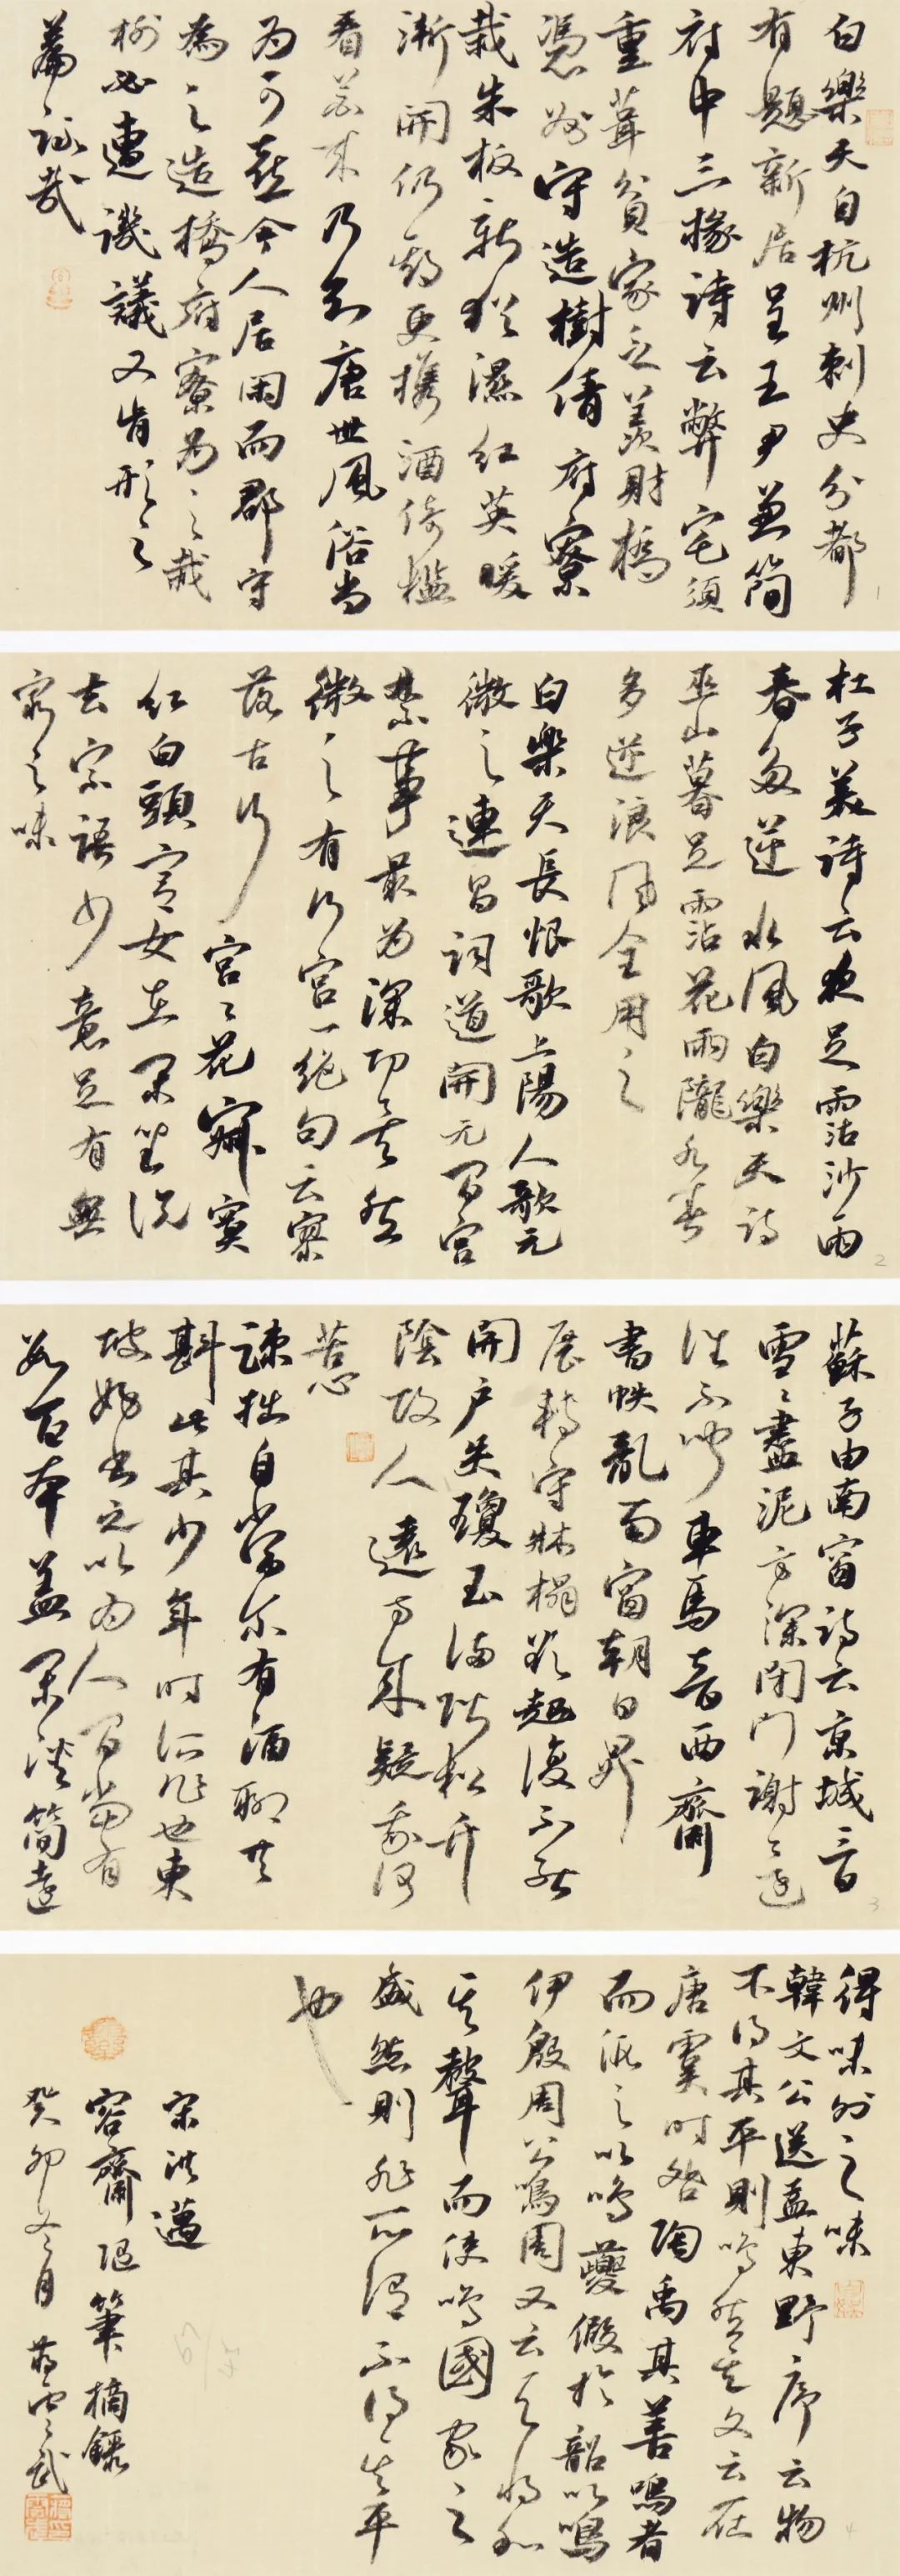 白樂天自杭州刺史分都
有題新居呈王尹兼簡
府中三掾詩云弊宅須
重葺貧家乏羨財橋
憑州守造樹倩府寮
栽朱板新猶濕紅英暖
漸開仍期更攜酒倚檻
看花來乃知唐世風俗尚
為可喜今人居閑而郡守
為之造橋府寮為之栽
樹必遭譏議又肯形之
篇詠哉
杜子美詩云夜足霑沙雨
春多逆水風白樂天詩
巫山暮足霑花雨隴水春
多逆浪風全用之
白樂天長恨歌上陽人歌元
微之連昌詞道開元間宮
禁事最為深切矣然
微之有行宮一絕句云寥
落古行宮宮花寂寞
紅白頭宮女在閑坐說
玄宗語少意足有無
窮之味
蘇子由南窗詩云京城三日
雪雪盡泥方深閉門謝還
往不聞車馬音西齋
書帙亂南窗朝日昇
展轉守牀榻欲起復不能
開戶失瓊玉滿階松竹
陰故人遠方來疑我何
苦心
疎拙自當尔有酒聊共
斟此其少年時所作也東
坡好書之以為人間當有
數百本蓋閑淡簡遠
得味外之味
韓文公送孟東野序云物
不得其平則鳴然其文云在
唐虞時咎陶禹其善鳴者
而假之以鳴夔假於韶以鳴
伊殷周公鳴周又云天將和
其聲而使鳴國家之
盛然則非所謂不得其平
也
宋洪邁
容齋隨筆摘錄
癸卯冬月